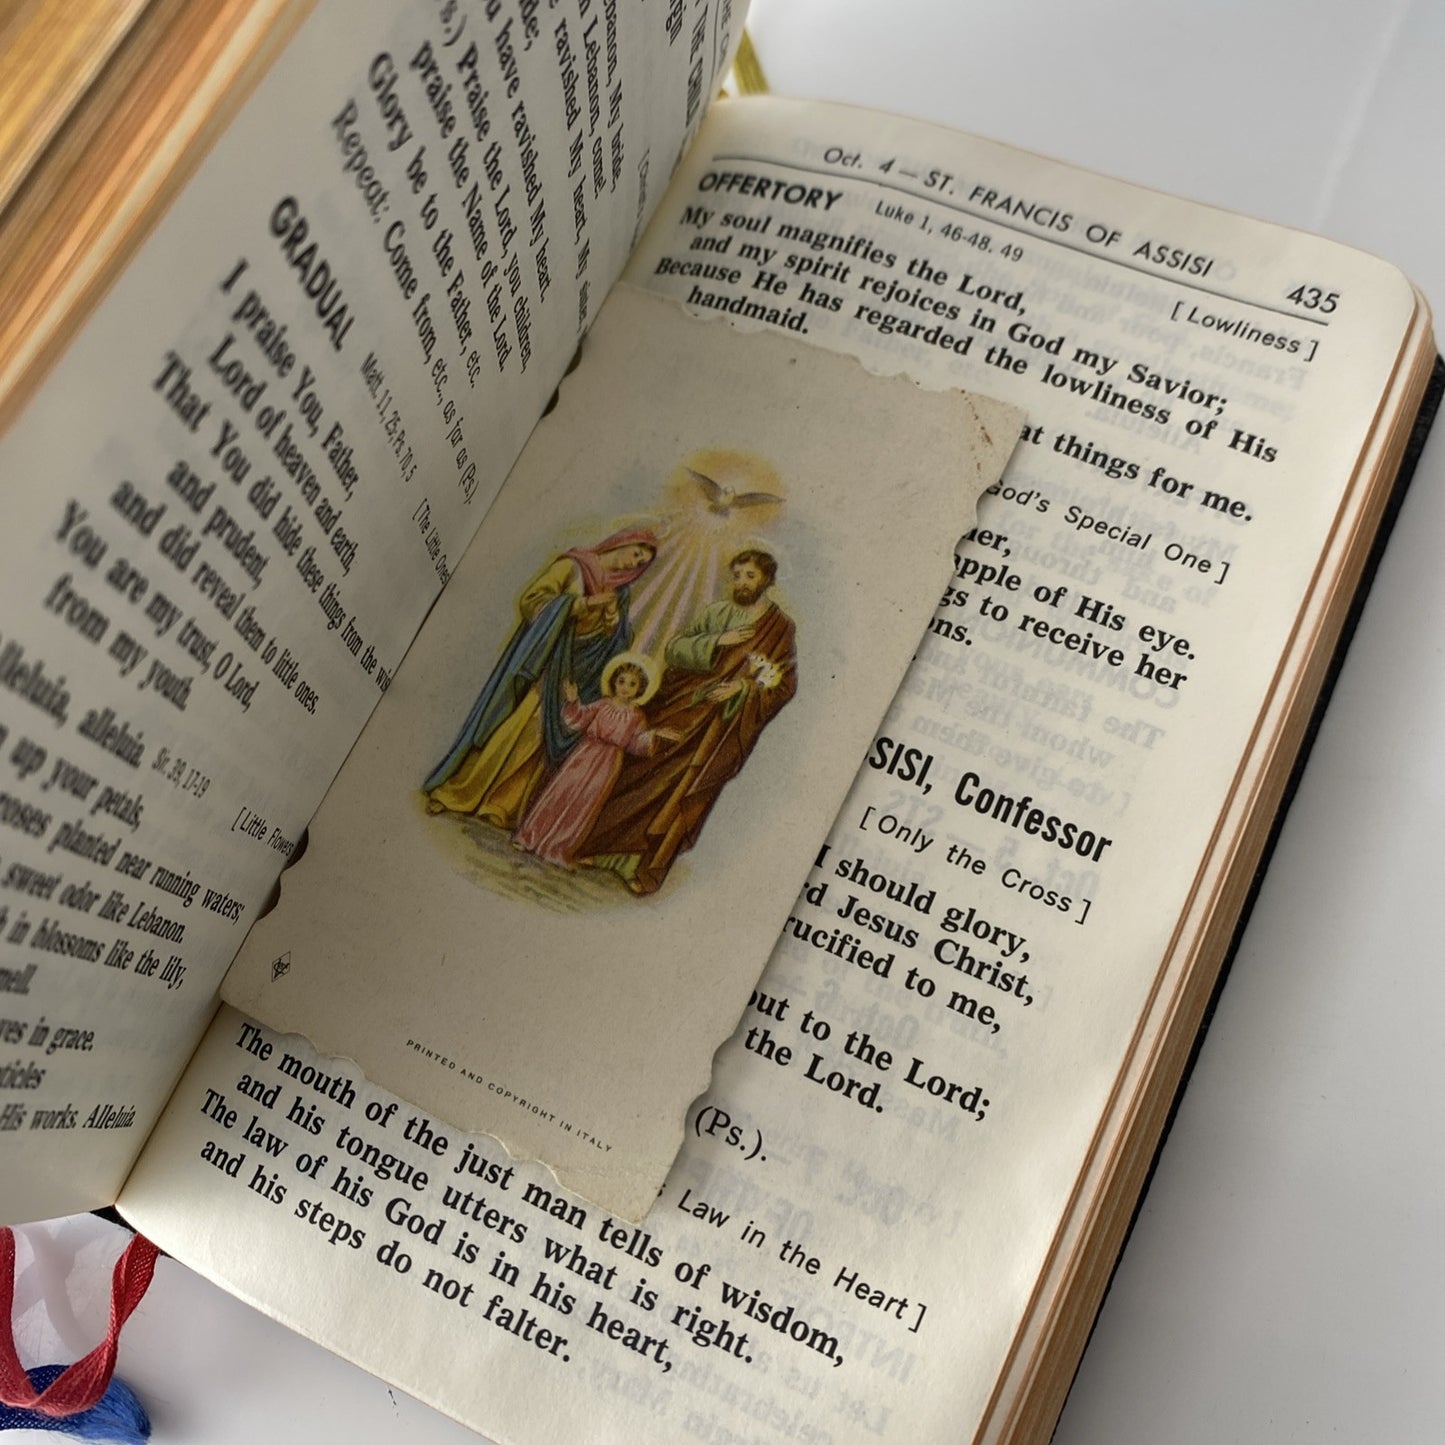 THE CHILD
Lebanon, My bride,
Lebanon, come!
ravished My heart, My sister,
have ravished My heart.
Praise the Lord, you children,
praise the Name of the Lord.
Glory be to the Father, etc.
Repeat: Come from, etc., as far as (Ps.).
GRADUAL Matt. 11, 25; Ps. 70, 5 [The Little Ones
I praise You, Father,
Lord of heaven and earth,
That You did hide these things from the wise
and prudent,
and did reveal them to little ones.
You are my trust, O Lord,
from my youth.
alleluia. Sir. 39, 17-19 [Little Flowers
up your petals,
roses planted near running waters;
sweet odor like Lebanon.
in blossoms like the lily,
smell.
in grace.
His works. Alleluia.
Oct. 4 — ST. FRANCIS OF ASSISI 435
OFFERTORY Luke 1, 46-48. 49 [Lowliness]
My soul magnifies the Lord,
and my spirit rejoices in God my Savior;
Because He has regarded the lowliness of His
handmaid.
things for me.
God's Special One]
apple of His eye.
to receive her
SISI, Confessor
[Only the Cross]
I should glory,
Jesus Christ,
to me,
out to the Lord;
the Lord.
(Ps.).
Law in the Heart]
The mouth of the just man tells of wisdom,
and his tongue utters what is right.
The law of his God is in his heart,
and his steps do not falter.
PRINTED AND COPYRIGHT IN ITALY